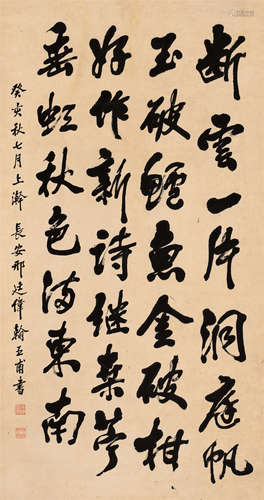 断雲一片洞庭帆
玉破鱸魚金破柑
好作新詩继桑苧
垂虹秋色满東南
癸亥秋七月上澣 長安邢廷偉翰臣甫書